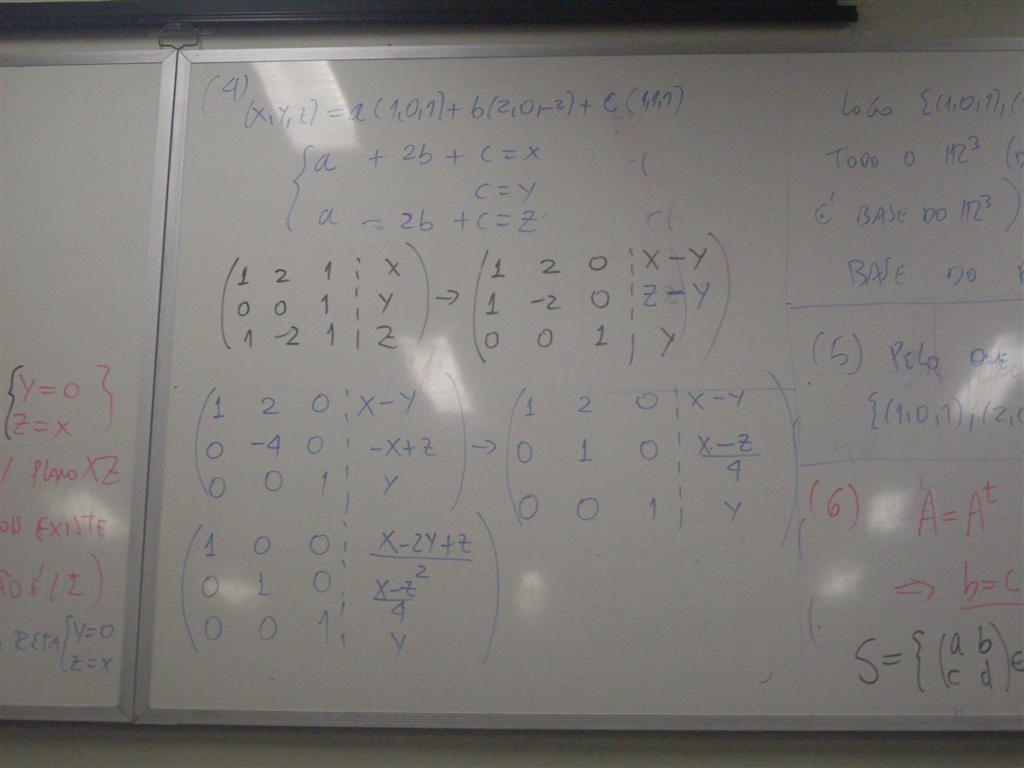 Y=0
Z=X
/ PLANO XZ
EXISTE
RETA { Y=0
Z=X
(4)
(X,Y,Z) = a(1,0,1)+b(2,0,-2)+c.(1,1,1)
{ a + 2b + c = x
c = y
a - 2b + c = z
( 1 2 1 ¦ X ) → ( 1 2 0 ¦ X-Y )
( 0 0 1 ¦ Y ) ( 1 -2 0 ¦ Z-Y )
( 1 -2 1 ¦ Z ) ( 0 0 1 ¦ Y )
( 1 2 0 ¦ X-Y ) → ( 1 2 0 ¦ X-Y )
( 0 -4 0 ¦ -X+Z ) ( 0 1 0 ¦ X-Z/4 )
( 0 0 1 ¦ Y ) ( 0 0 1 ¦ Y )
( 1 0 0 ¦ X-2Y+Z/2 )
( 0 1 0 ¦ X-Z/4 )
( 0 0 1 ¦ Y )
LOGO {(1,0,1),(
TODO O IR³ (
É BASE DO IR³)
BASE DO
(5) PELO QUE
{(1,0,1),(2,0
(6) A=Aᵗ
⇒ b=c
S={ (a b
c d) ∈